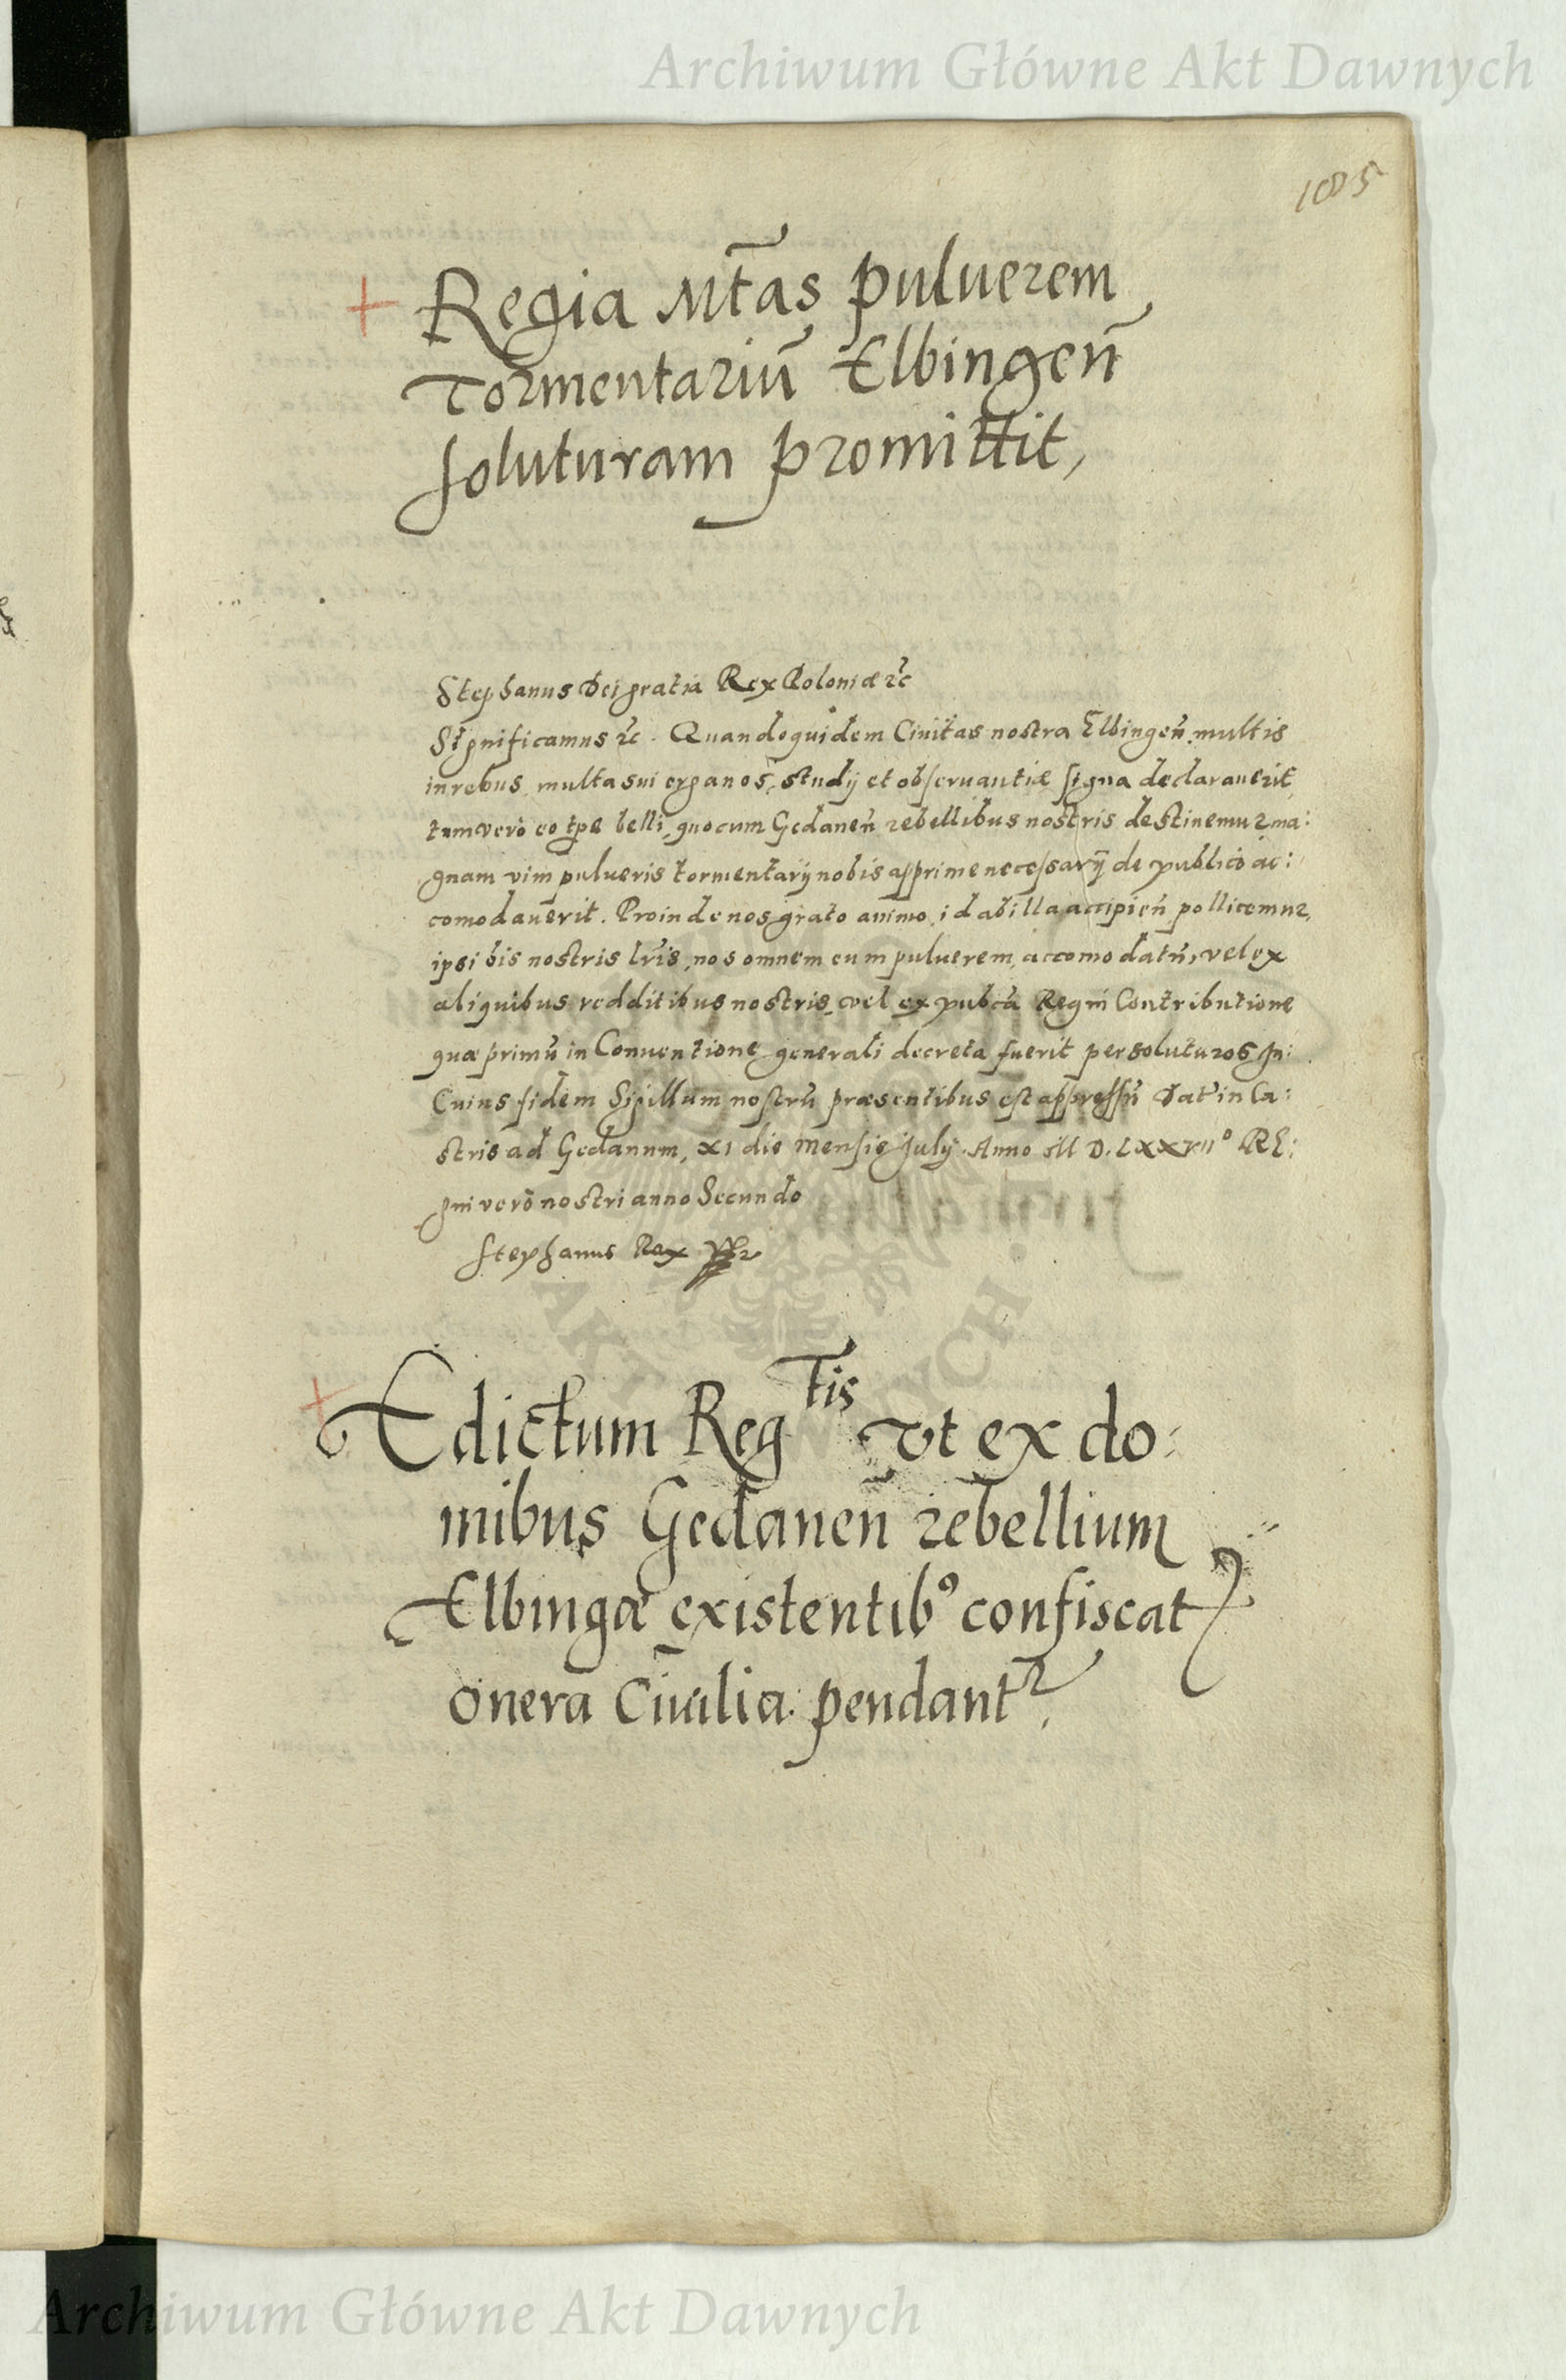 Archiwum Główne Akt Dawnych
185
Regia Mt̃as puluerem
Tormentariũ Elbingeñ
soluturam promittit,
Stephanus Dei gratia Rex Poloniæ &c
Significamus &c. Quandoquidem Ciuitas nostra Elbingeñ. multis
in rebus multa sui erga nos, studij et obseruantiæ signa declarauerit
tum vero eo tp̃e belli, quo cum Gedaneñ rebellibus nostris destinemur ma:
gnam vim pulueris tormentarij nobis apprime necessarij de publico ac:
comodauerit. Proinde nos grato animo id ab illa accipieñ pollicemur,
ipsi his nostris lr̃is, nos omnem eum puluerem, accomodatũ, vel ex
aliquibus redditibus nostris, vel ex pub̃ca Regni Contributione
quæ primũ in Conuentione generali decreta fuerit persoluturos In:
Cuius fidem Sigillum nostrũ præsentibus est appressũ Dat in Ca:
stris ad Gedanum, XI die mensis Julij Anno M D. LXXVII° RE:
gni vero nostri anno Secundo
Stephanus Rex
Edictum Reg Tis vt ex do:
mibus Gedaneñ rebellium
Elbingæ existentib9 confiscat
onera Ciuilia pendantr.
AKT
Archiwum Główne Akt Dawnych